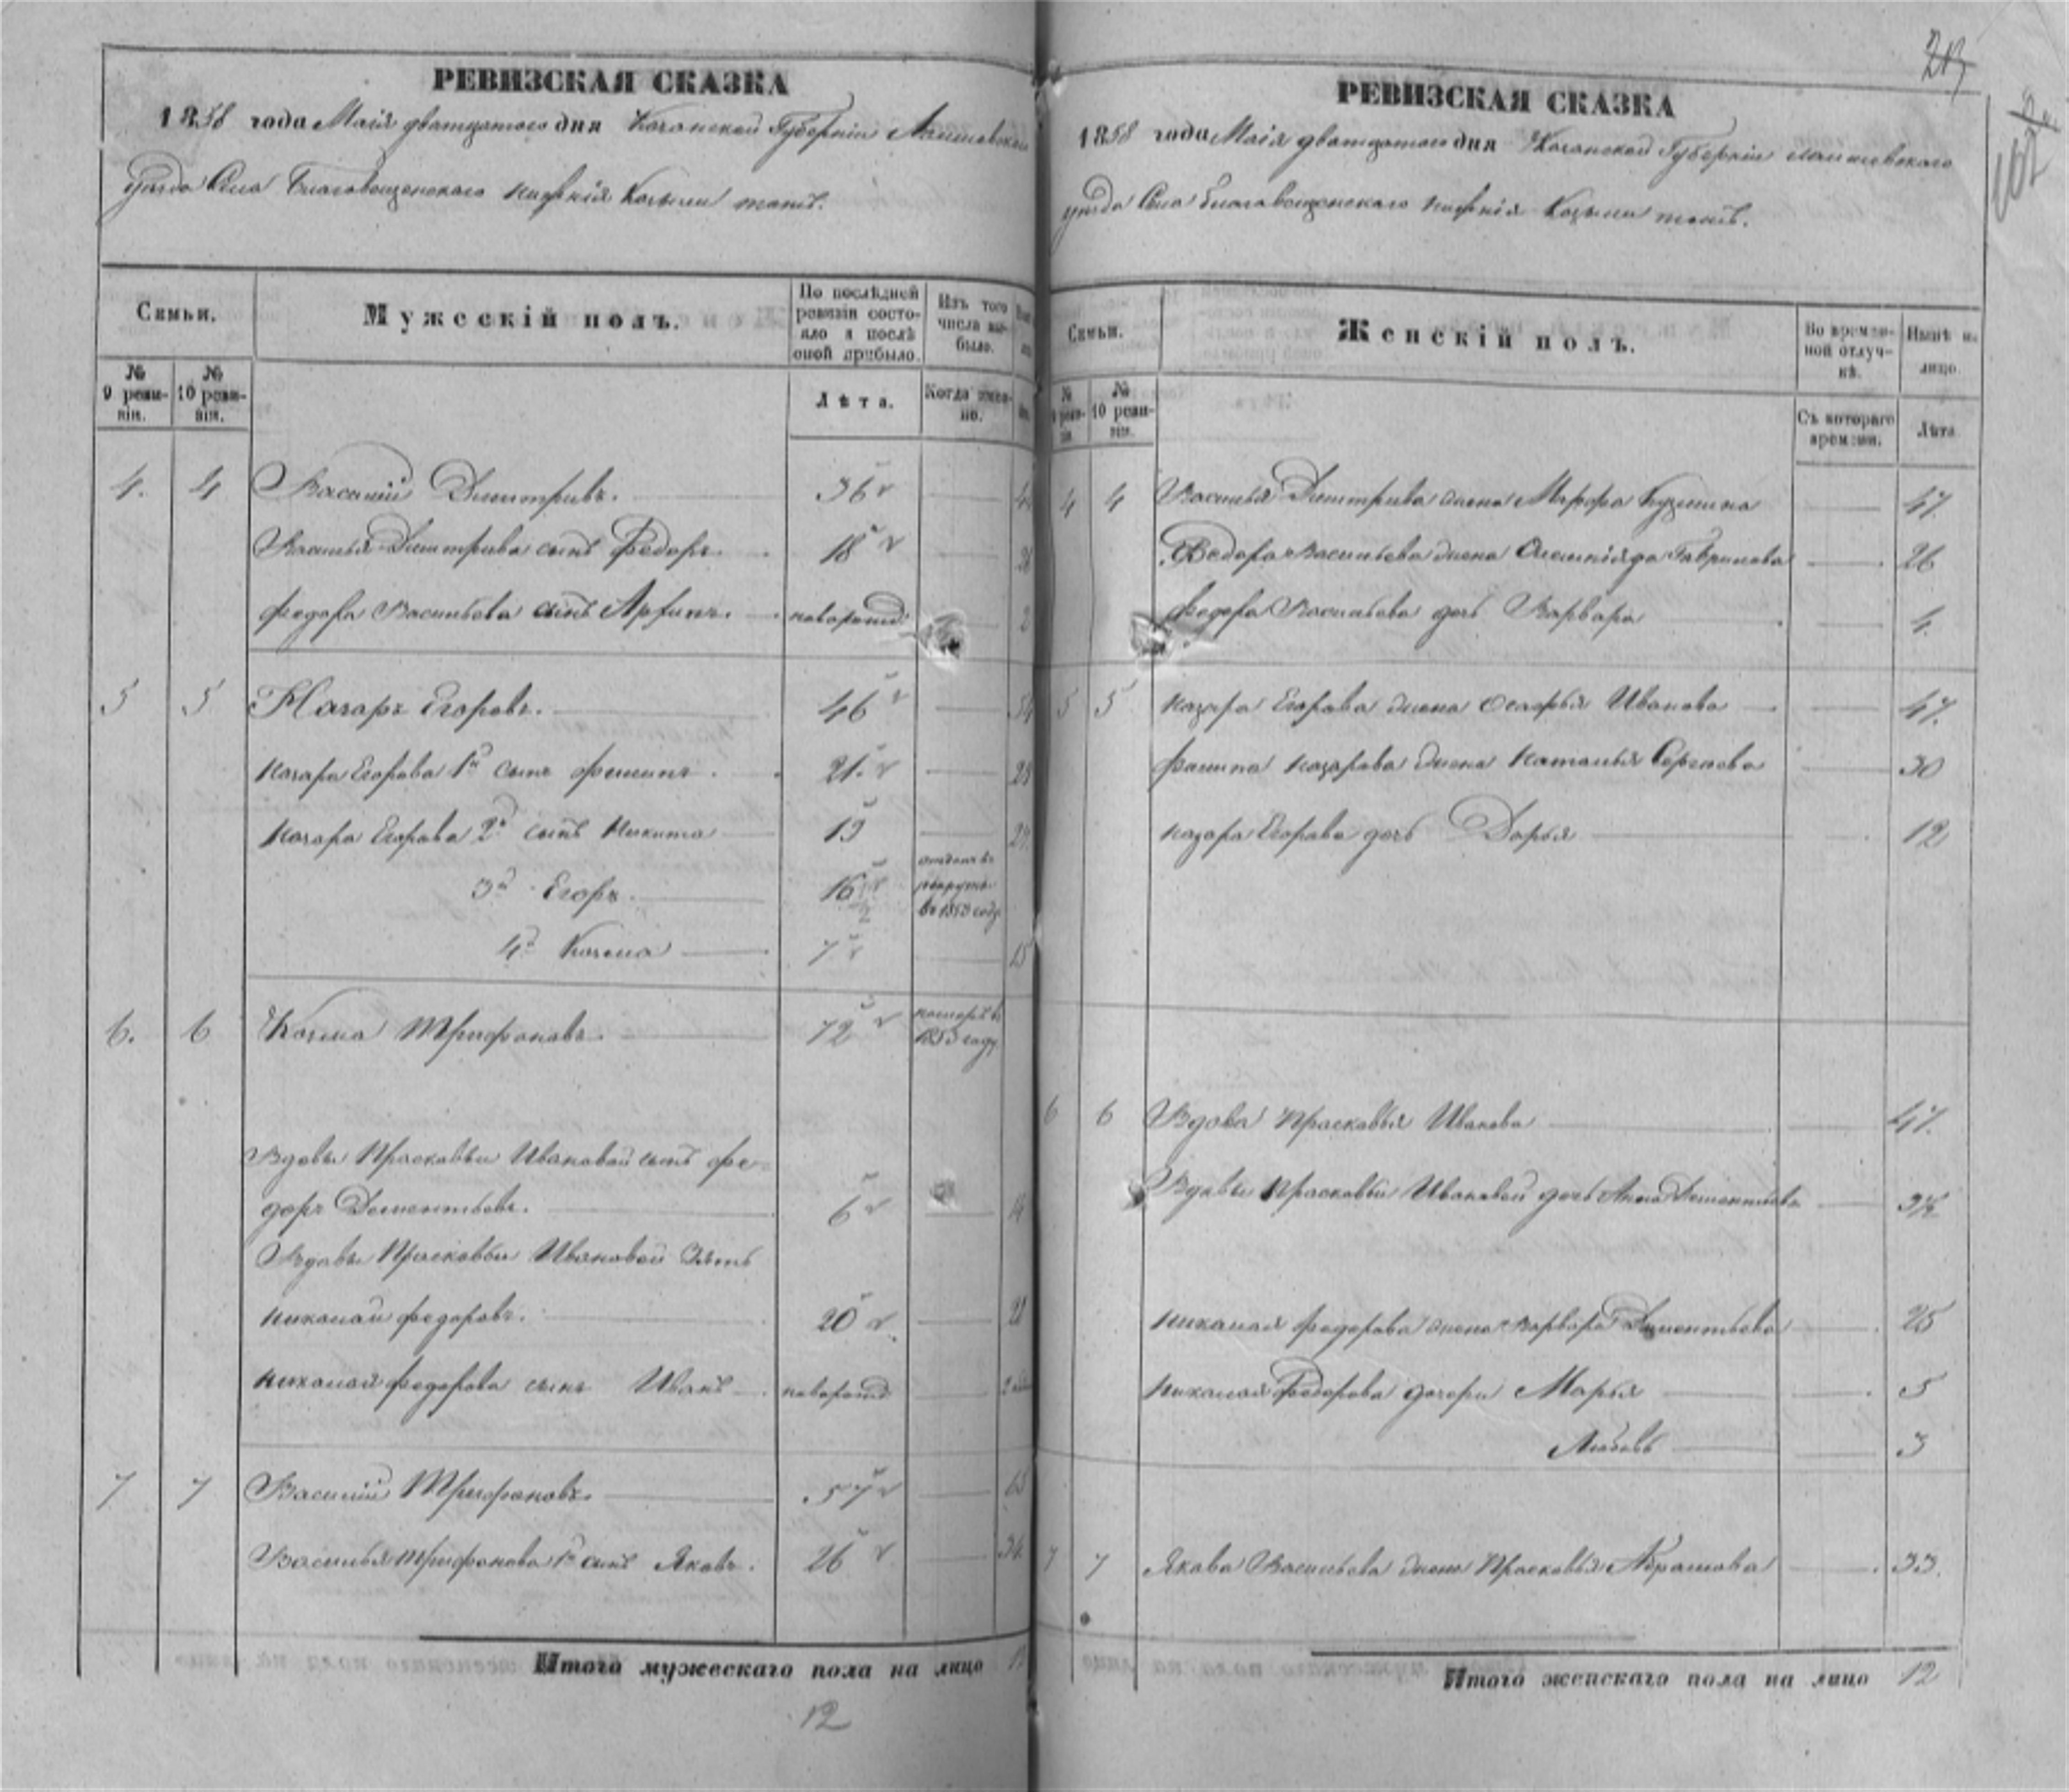 РЕВИЗСКАЯ СКАЗКА
1858 года Маія дватцатого дня Казанской Губерніи Лаишевскаго
уезда Села Благовещенскаго Нижнія Козыли тожъ.
Семьи.
Мужескій полъ.
По послѣдней ревизіи состояло и послѣ оной прибыло.
Изъ того числа выбыло.
№ 9 ревизіи.
№ 10 ревизіи.
Лѣта.
Когда именно.
4. 4 Василій Димитріевъ. 36
Василья Димитріева сынъ Федоръ 18 26
Федора Васильева сынъ новорожд 2
5 5 Назаръ Егоровъ. 46 54
Назара Егорова 1й сынъ Филипъ 21 29
Назара Егорова 2й сынъ Никита 13
отданъ въ рекруты въ 1853 году
3й Егоръ 16
4й Козма 7 15
6. 6 Козма Трифоновъ. 72 померъ въ 1853 году
Вдовы Прасковьи Ивановой сынъ Фе-
доръ Дементьевъ. 6 14
Вдовы Прасковьи Ивановой Зять
Николай Федоровъ. 20 28
Николая Федорова сынъ Иванъ новорожд
7 7 Василій Трифоновъ. 57 65
Василья Трифонова 1й сынъ Яковъ. 26 34
Итого мужескаго пола на лицо
12
РЕВИЗСКАЯ СКАЗКА
1858 года Маія дватцатого дня Казанской Губерніи Лаишевскаго
уезда Села Благовещенскаго Нижнія Козыли тожъ.
Семьи.
Женскій полъ.
Во временной отлучкѣ.
Нынѣ на лицо.
№ 10 ревизіи.
Съ котораго времени.
Лѣта
4 4 Василья Димитріева жена Марфа Кузмина 47
Федора Васильева жена Гаврилова 26
Федора Васильева дочь Варвара 4
5 5 Назара Егорова жена Иванова 47
Филипа Назарова жена Наталья Сергеева 30
Назара Егорова дочь Дарья 12
6 6 Вдова Прасковья Иванова 47
Вдовы Прасковьи Ивановой дочь Анна Дементьева
Николая Федорова жена Варвара Дементьева 25
Николая Федорова дочери Марья 5
Любовь 3
7 7 Якова Васильева жена Прасковья Абрамова 33.
Итого женскаго пола на лицо 12